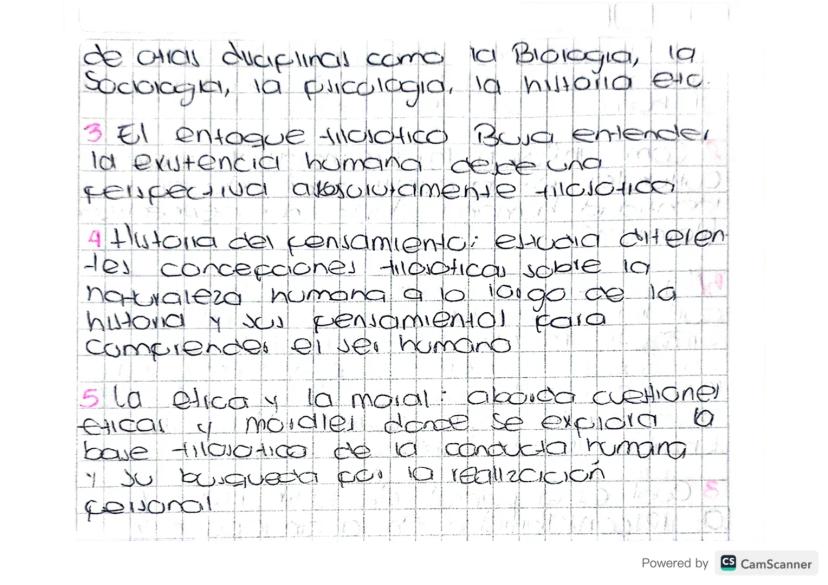 de otras disciplinas como la Biologia, la
Sociologia, la psicologia, la historia etc.
3 El enfoque filosofico Busca entender
la existencia humana desde una
perspectiva absolutamente filosofico
4 Historia del pensamiento: estudia diferen
-tes concepciones filosoficas sobre la
naturaleza humana a lo largo de la
historia y sus pensamientos para
comprender el ser humano
5 la etica y la moral: aborda cuestiones
eticas y morales donde se explora la
base filosofico de la conducta humana
y su busqueda por la realizacición
personal
Powered by CS CamScanner